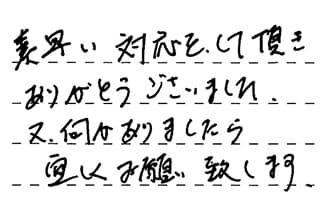 素早い対応をして頂き
ありがとうございました.
又.何かありましたら
宜しくお願い致します.